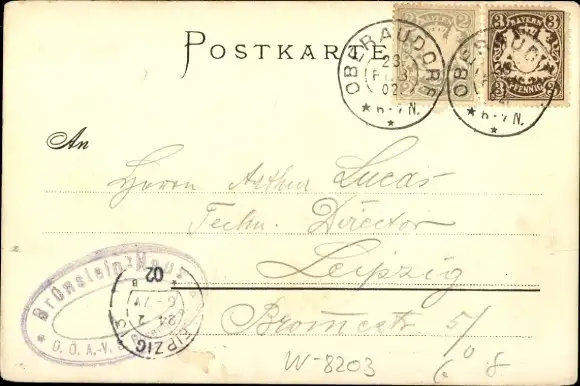 POSTKARTE
BAYERN
2 2
BAYERN
3 3
3 PFENNIG 3
OBERAUDORF
23
FEB
02
6-7 N.
OBERAUD
6-7 N.
An
Herrn Arthur Lucas
Techn. Director
Leipzig
Brünnlein's Haus
D. Ö. A.-V.
LEIPZIG 13
24 2
6-7V
02
5/
W-8203
8